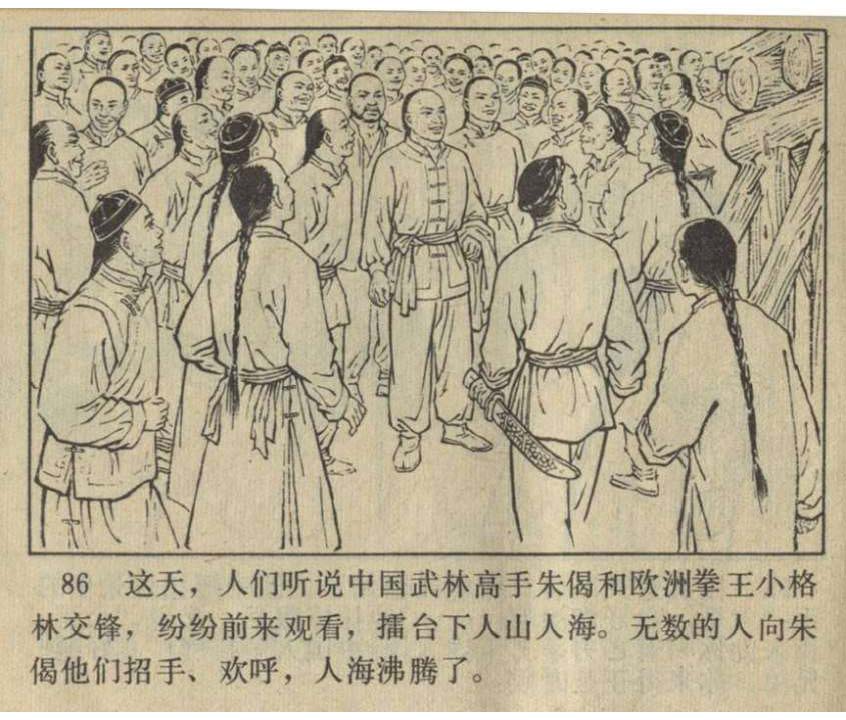 86 这天，人们听说中国武林高手朱偈和欧洲拳王小格
林交锋，纷纷前来观看，擂台下人山人海。无数的人向朱
偈他们招手、欢呼，人海沸腾了。